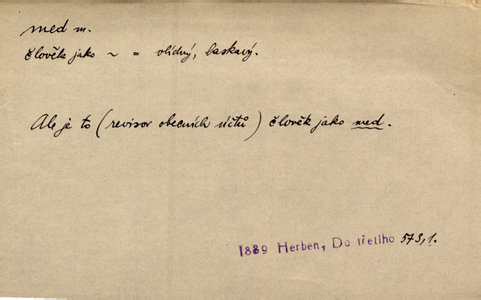 med m.
člověk jako ~ = vlídný, laskavý.
Ale je to (revisor obecních účtů) člověk jako med.
1889 Herben, Do třetího 573,1.